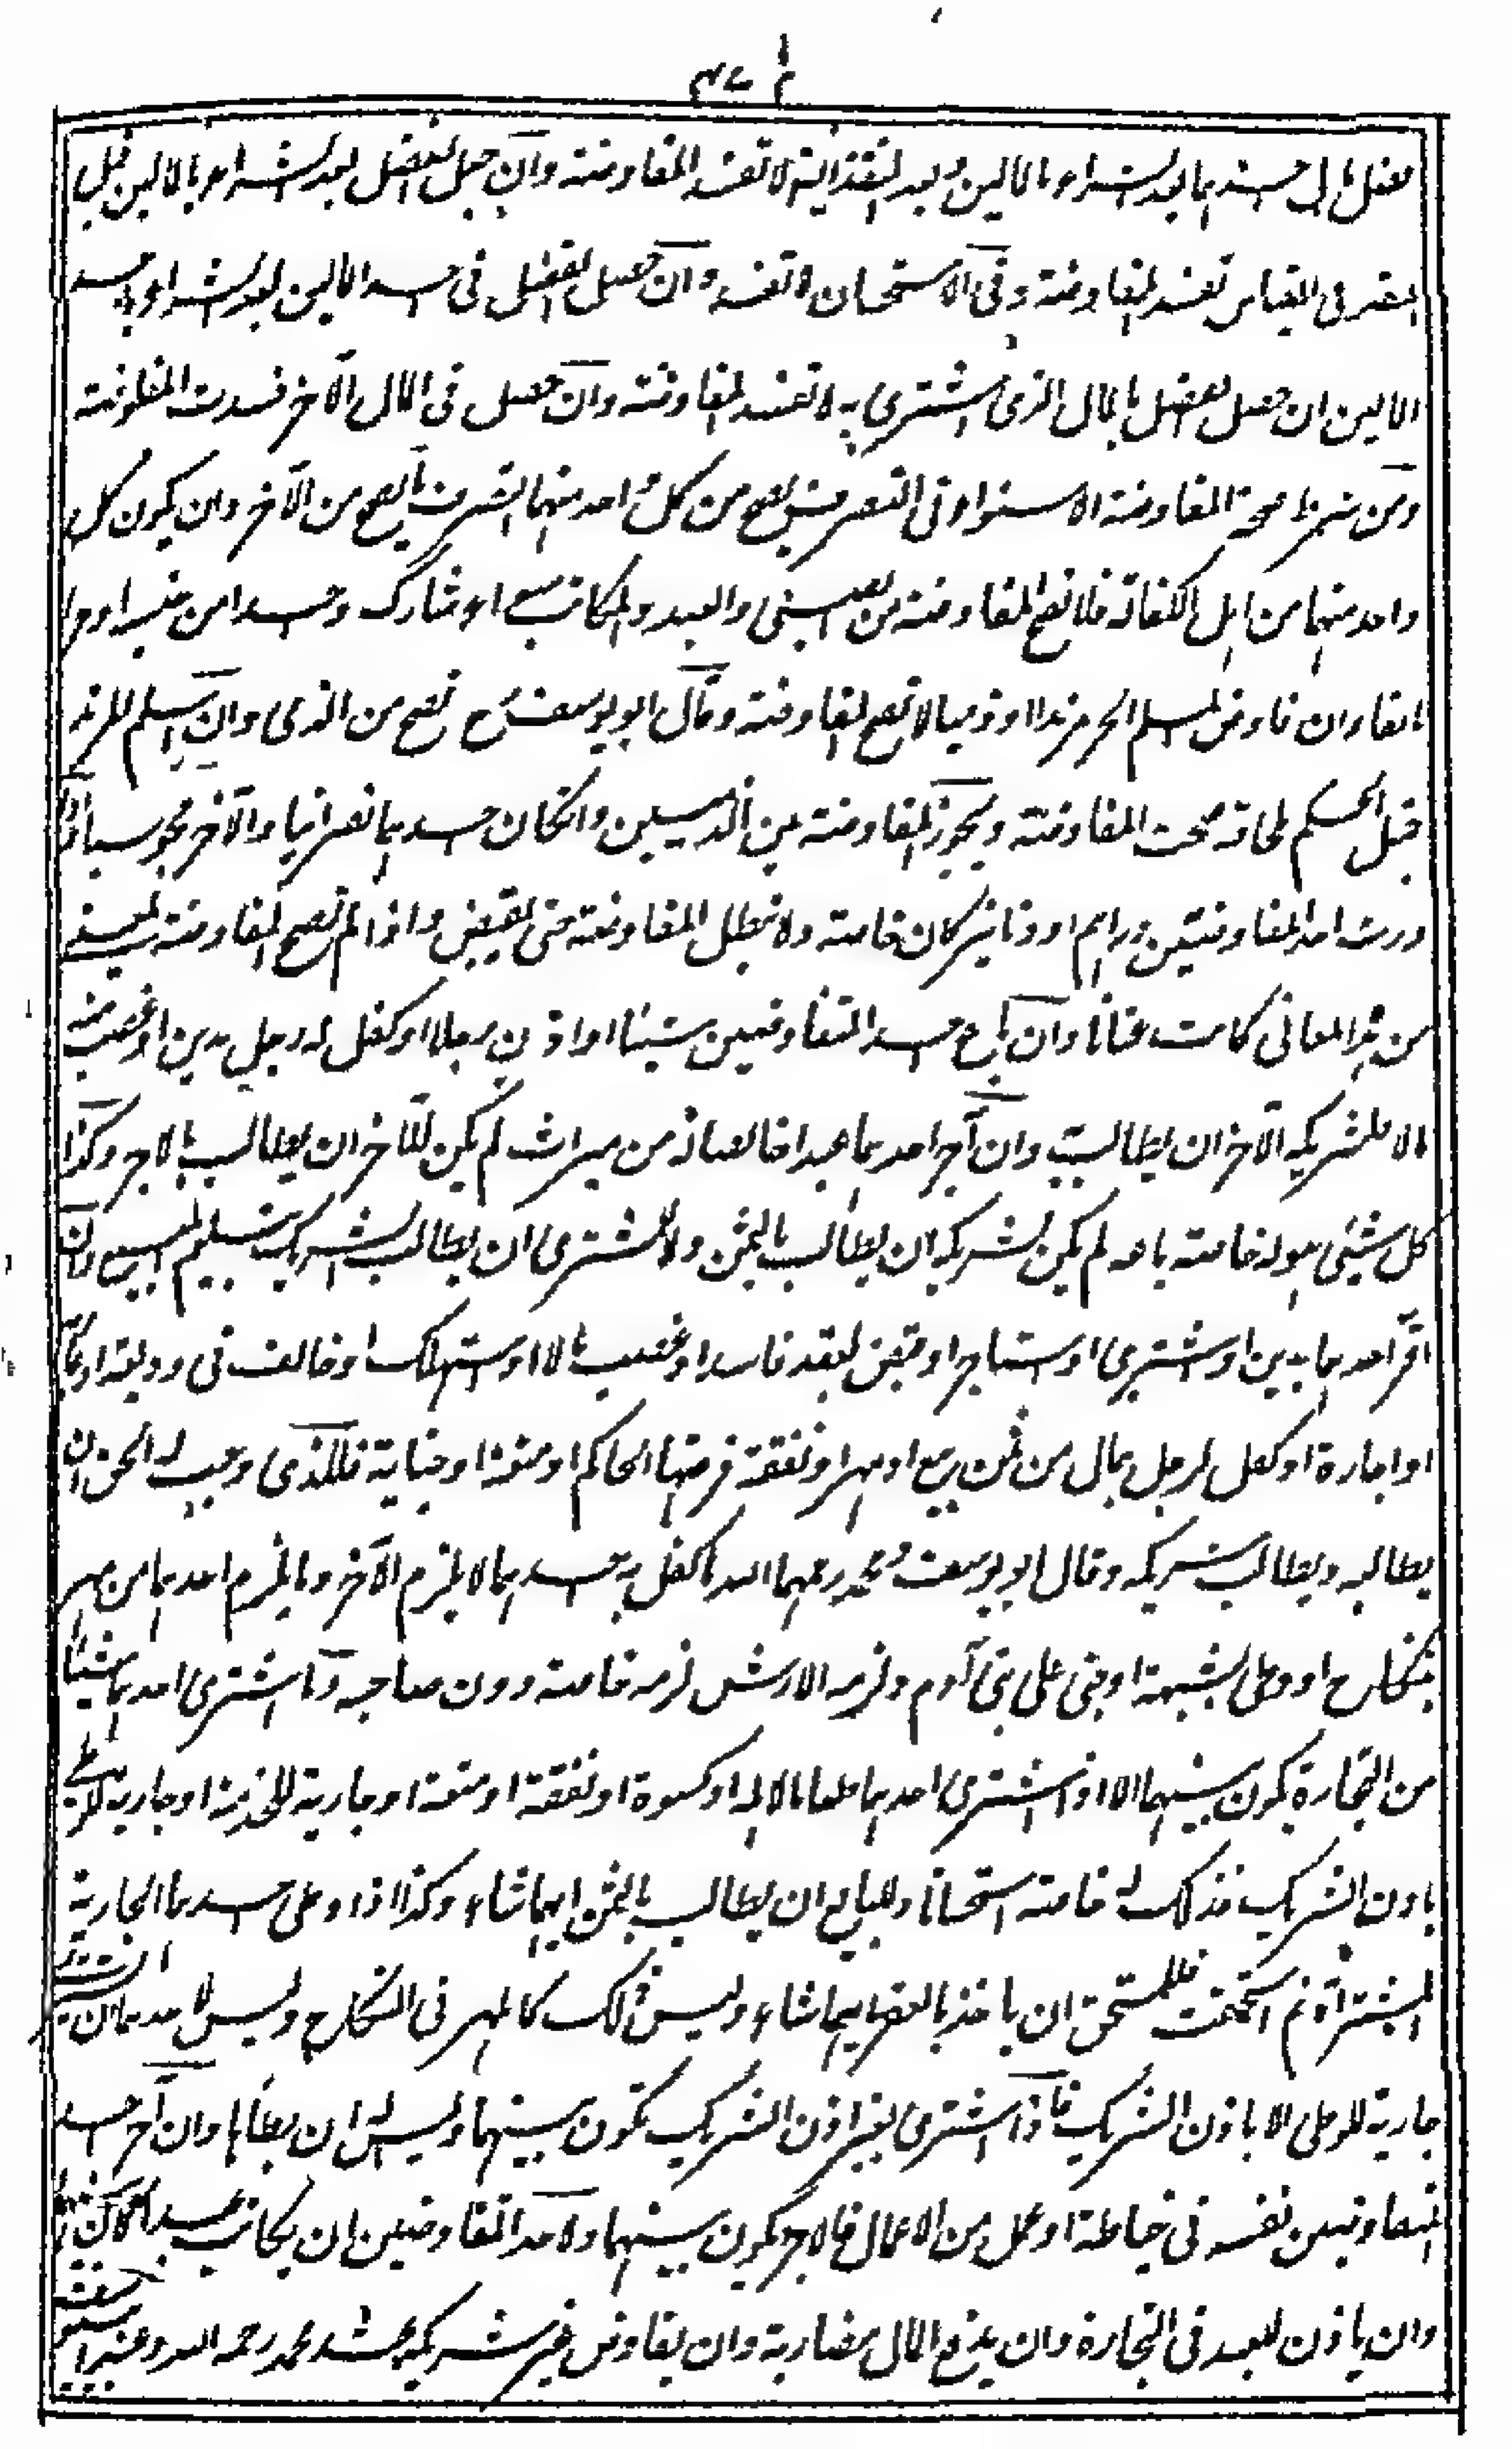 فضل مال احدهما بعد الشراء بالمالين وبعد النقد الفاسد لا تفسد المفاوضة وان حصل الفضل بعد الشراء بالمالين قبل
النقد فى القياس تفسد المفاوضة وفى الاستحسان لا تفسد وان حصل الفضل فى احد المالين بعد الشراء باحد
المالين ان حصل الفضل بالمال الذى اشترى به لا تفسد المفاوضة وان حصل فى المال الآخر فسدت المفاوضة
ومن شرط صحة المفاوضة الاستواء فى التصرف يصح من كل واحد منهما التصرف ما يصح من الآخر وان يكون كل
واحد منهما من اهل الكفالة فلا تصح المفاوضة من الصبى والعبد والمكاتب سواء شارك واحدا من جنسه او حرا
بالغا وان فاوض المسلم الحر مرتدا او ذميا لا تصح المفاوضة وقال ابو يوسف رح تصح من الذمى وان اسلم المرتد
قبل الحكم بلحاقه صحت المفاوضة ويجوز المفاوضة بين الذميين وان كان احدهما نصرانيا والآخر مجوسيا وان
ورث احد المفاوضين دراهم او دنانير كان خاصة ولا تبطل المفاوضة حتى يقبض واذا لم تصح المفاوضة لمعنى
من هذه المعانى كانت عنانا وان باع احد المتفاوضين شيئا او اذان رجلا او كفل له رجل بدين او غصب منه
مالا فلشريكه الآخر ان يطالب وان آجر احدهما عبدا خالصا له من ميراث لم يكن للآخر ان يطالب بالاجر وكذا
كل شئ هو له خاصة باعه لم يكن لشريكه ان يطالب بالثمن ولا للمشترى ان يطالب الشريك بتسليم المبيع وان
اقر احدهما بدين او اشترى او استاجر او قبض بعقد فاسد او غصب مالا او استهلك او خالف فى وديعة او عارية
او اجارة او كفل لرجل بمال من ثمن بيع او مهر او نفقة فرضها الحاكم او متعة او جناية فللذى وجب له الحق ان
يطالبه ويطالب شريكه وقال ابو يوسف ومحمد رحمهما الله ما كفل به احدهما لا يلزم الآخر وما يلزم احدهما من مهر
بنكاح او وطى بشبهة او جنى على بنى آدم ولزمه الارش لزمه خاصة دون صاحبه وما اشترى احدهما شيئا
من التجارة يكون بينهما الا اذا اشترى احدهما طعاما لاهله او كسوة او نفقة او متعة او جارية للخدمة او جارية للوطى
باذن الشريك فذلك له خاصة استحسانا وللبايع ان يطالب بالثمن ايهما شاء وكذا اذا وطى احدهما الجارية
المشتراة ثم استحقت فللمستحق ان ياخذ بالعقر ايهما شاء وليس ذلك كالمهر فى النكاح وليس لاحدهما ان يشترى
جارية للوطى الا باذن الشريك فاذا اشترى بغير اذن الشريك تكون بينهما وليس له ان يطأها وان آجر احد
المتفاوضين نفسه فى خياطة او عمل من الاعمال فالاجر يكون بينهما ولاحد المتفاوضين ان يكاتب عبدا كان
وان ياذن للعبد فى التجارة وان يدفع المال مضاربة وان يفاوض غير شريكه عند محمد رحمه الله وعند ابى يوسف